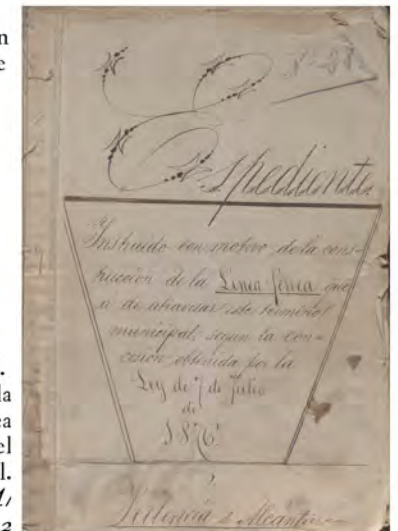 n
e
Nº 38
Espediente
Instruido con motivo de la cons-
truccion de la Linea férea que
a de atravesar este termino
municipal, segun la con-
cesion obtenida por la
Ley de 7 de Julio
de
1876
Valencia de Alcántara
.
la
ea
el
l.